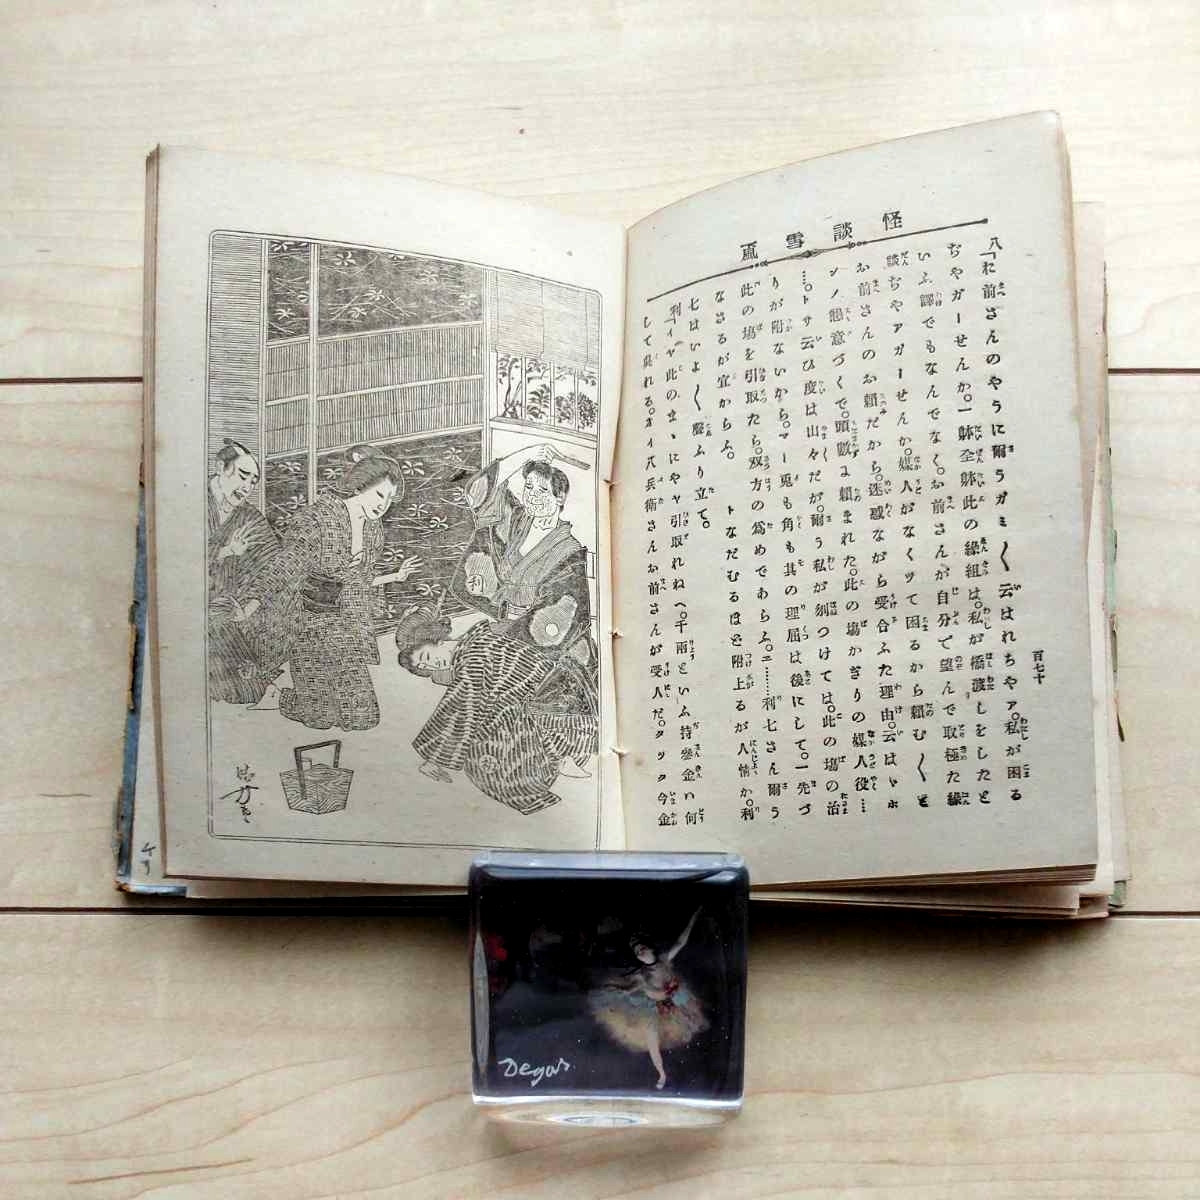 怪談雪亟
八「お前さんのやうに爾うガミ〳〵云はれちやア。私が困る
ぢやガーせんか。一躰全躰此の縁組は。私が橋渡しをしたと
いふ譯でもなんでなく。お前さんが自分で望んで取極た縁
談ぢやアガーせんか。媒人がなくツて困るから頼む〳〵と
お前さんのお頼だから。迷惑ながら受合ふた理由。云はゞホ
ンノ懇意づくで。頭數に頼まれた。此の塲かぎりの媒人役…
…。トサ云ひ度は山々だが。爾う私が刎つけては。此の塲の治
りが附ないから。マー兎も角も其の理屈は後にして。一先づ
此の塲を引取たら。双方の爲めであらふ。ニ……利七さん爾う
なさるが宜からふ。　トなだむるほど附上るが人情か。利
七はいよ〳〵聲ふり立て。
利「イヤ此のまゝにやヤ引取れねへ。千兩といふ持參金ハ何
して呉れる。オイ八兵衛さんお前さんが受人だ。タツタ今金
百七十
利
Degas